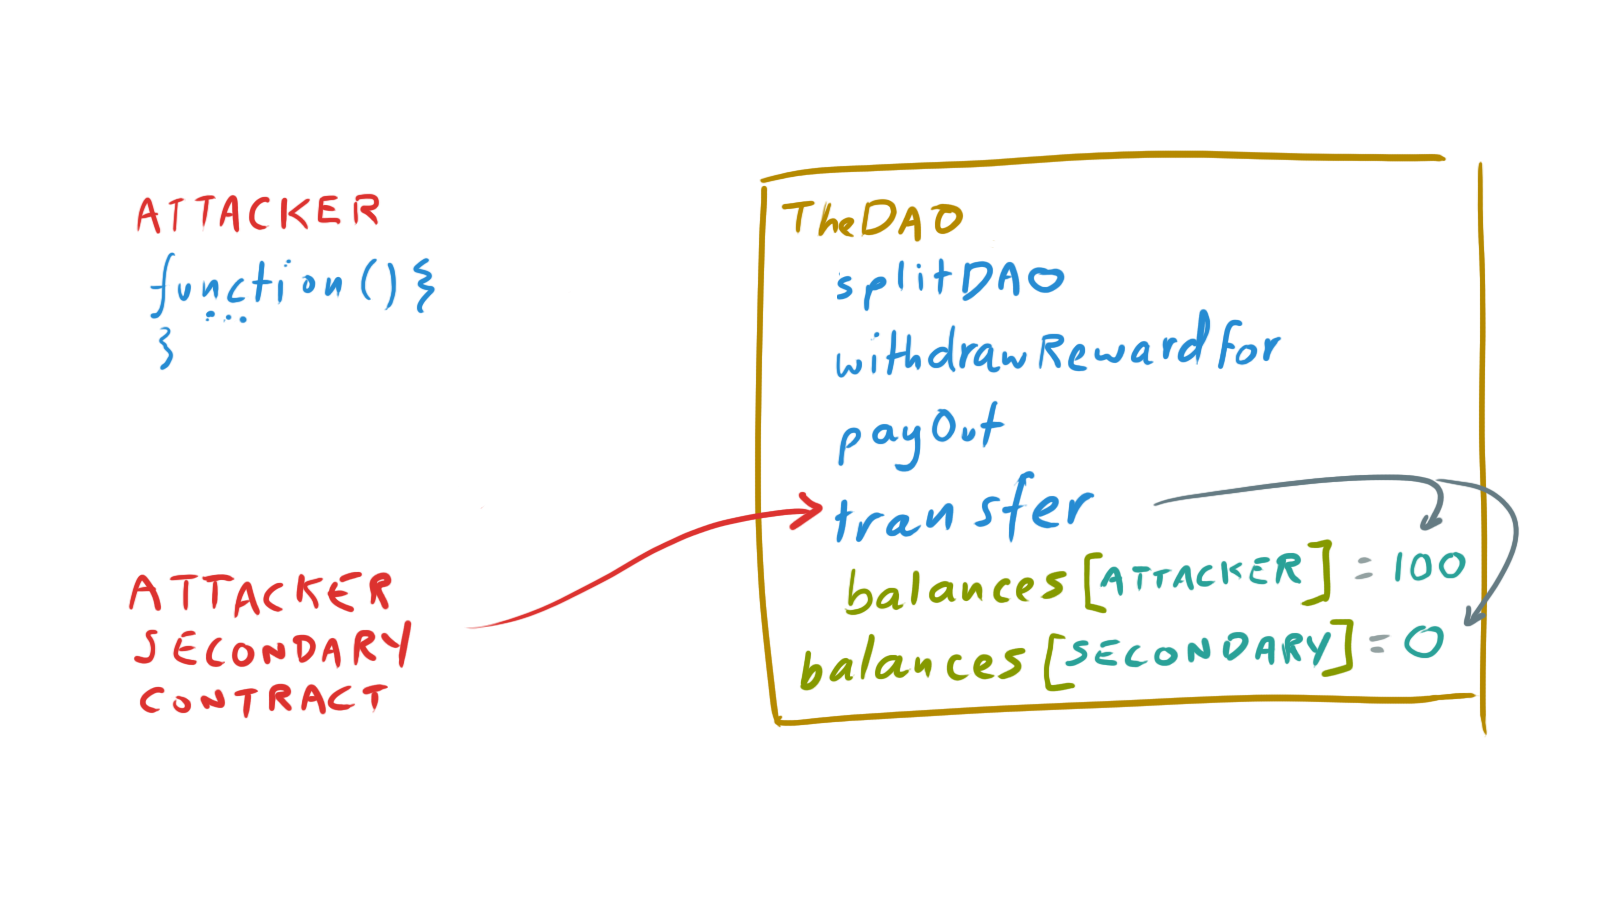 ATTACKER
function(){
...
}
ATTACKER
SECONDARY
CONTRACT
TheDAO
splitDAO
withdrawRewardFor
payOut
transfer
balances[ATTACKER] = 100
balances[SECONDARY] = 0